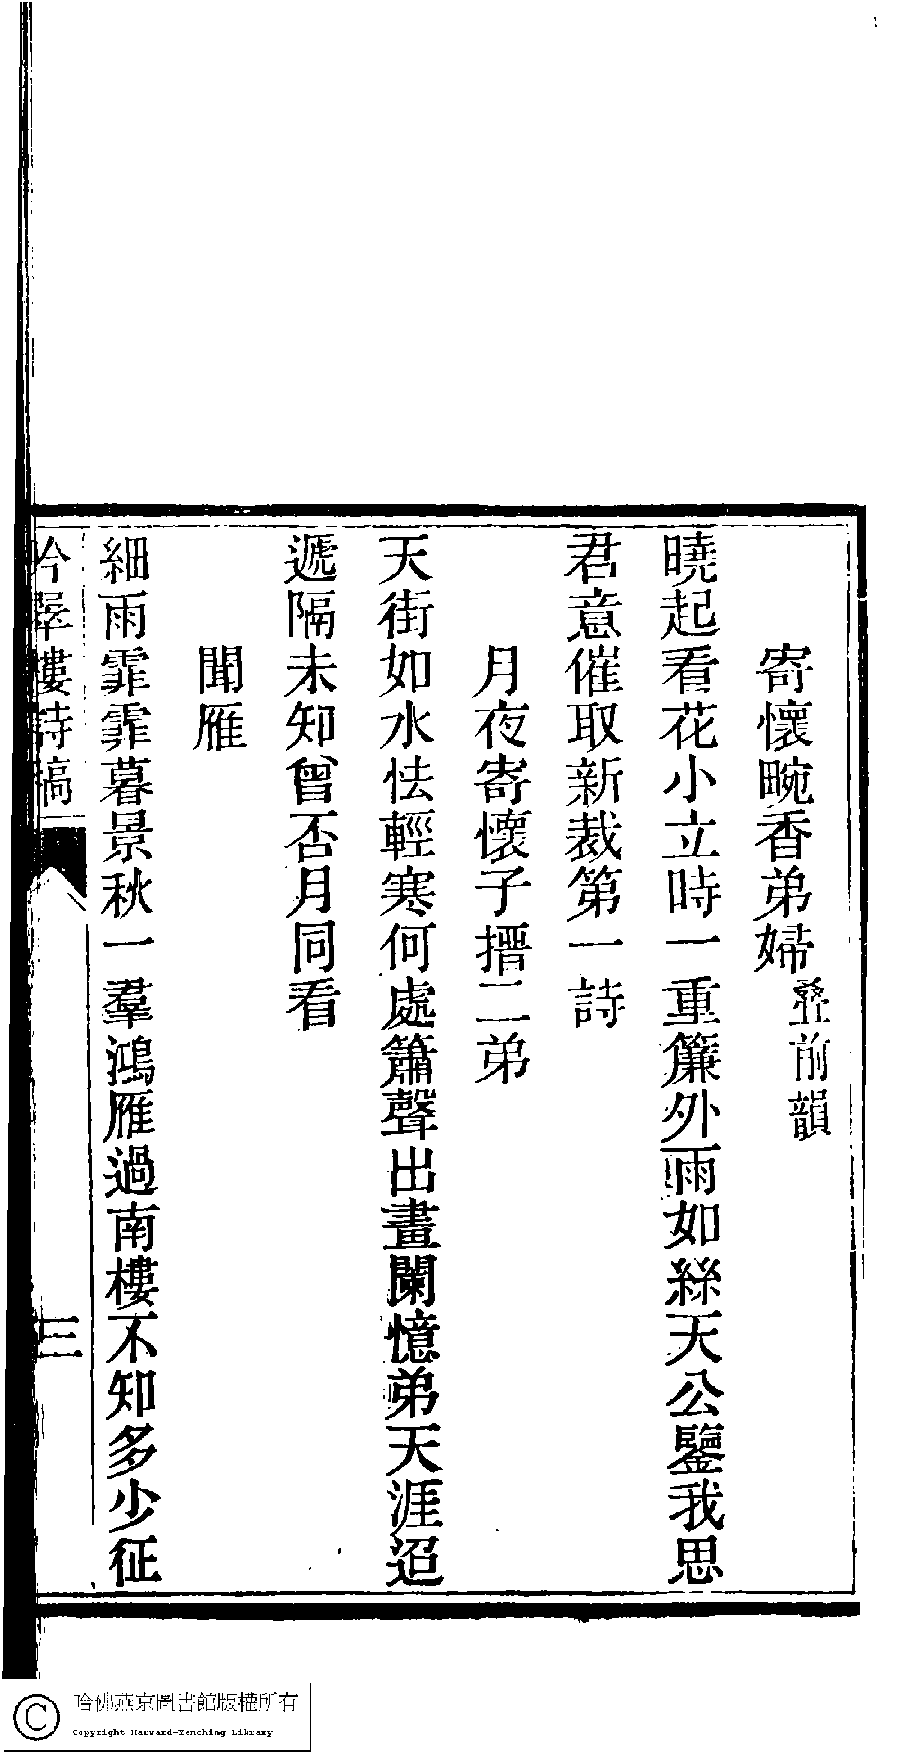 寄懷畹香弟婦疊前韻
曉起看花小立時一重簾外雨如絲天公鑒我思
君意催取新裁第一詩
月夜寄懷子搢二弟
天街如水怯輕寒何處簫聲出畫闌憶弟天涯迢
遞隔未知曾否月同看
聞雁
細雨霏霏暮景秋一羣鴻雁過南樓不知多少征
吟翠樓詩稿
三
哈佛燕京圖書館版權所有
Copyright Harvard-Yenching Library